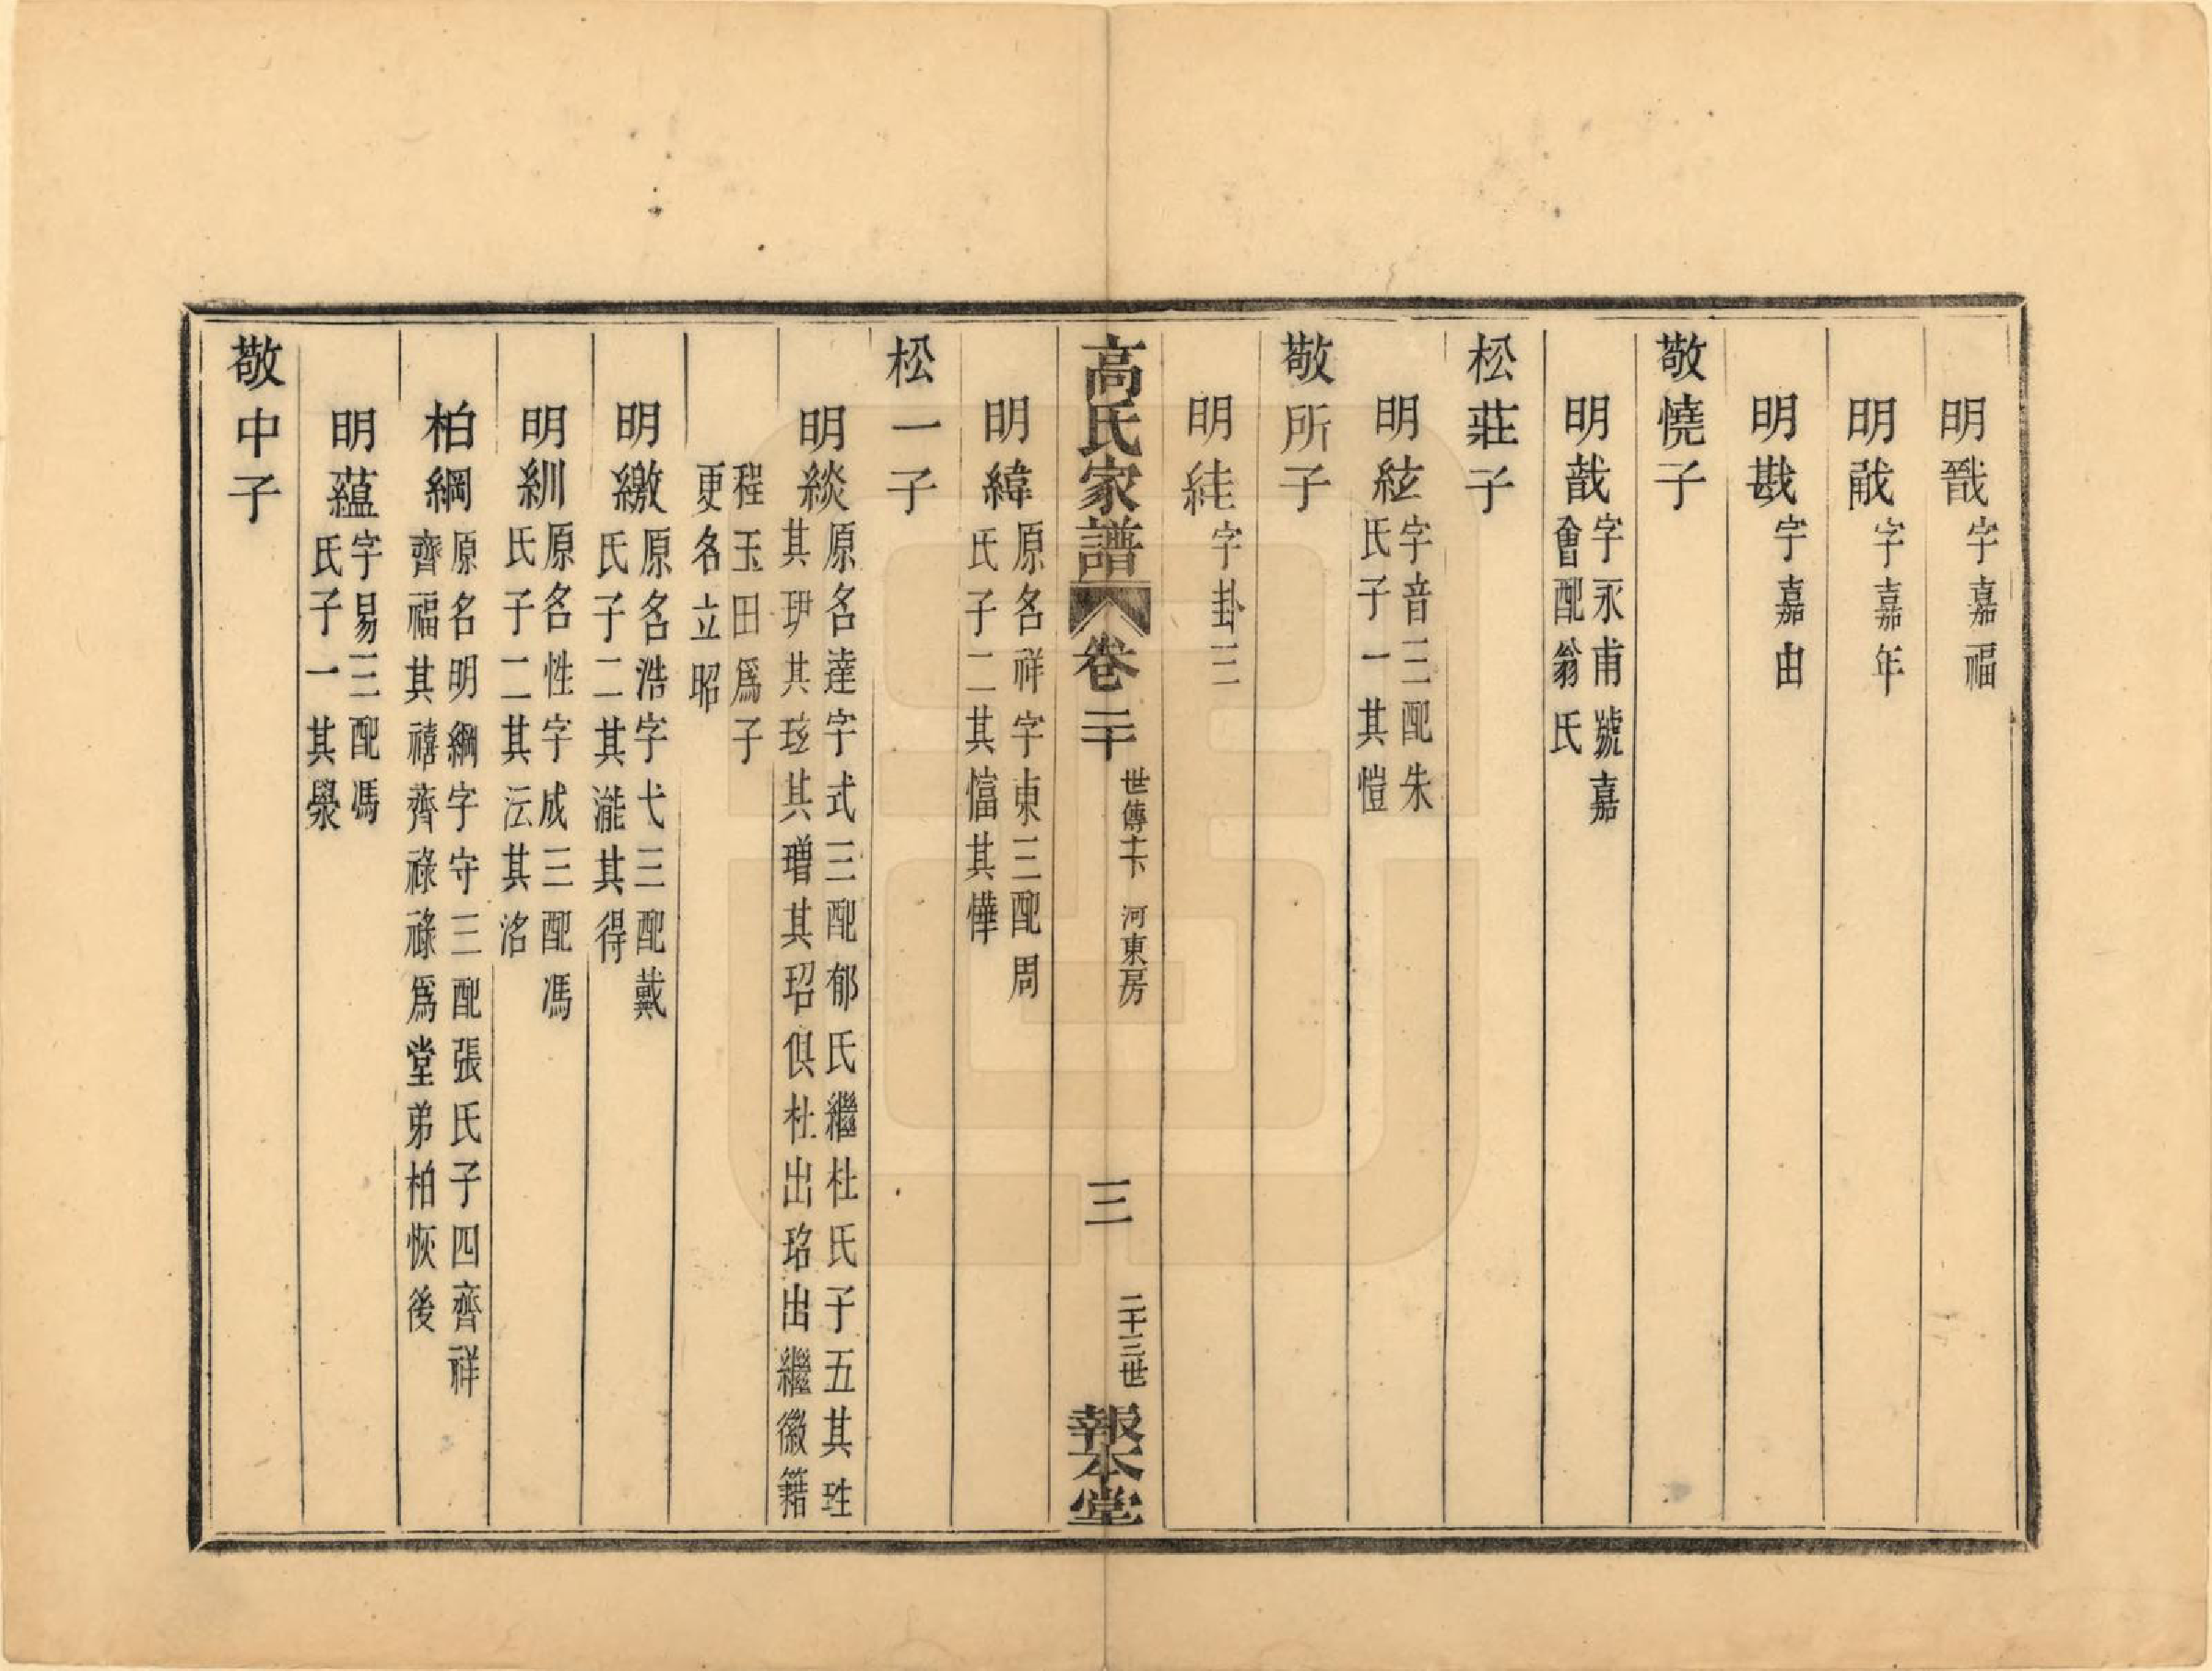 明戩字嘉福
明戭字嘉年
明戡字嘉由
敬憢子
明戠字永甫號嘉
會配翁氏
松莊子
明紘字音三配朱
氏子一其愷
敬所子
明絓字卦三
高氏家譜 卷二十 世傳十下 河東房 三 二十三世 報本堂
明緯原名祥字東三配周
氏子二其愊其㦊
松一子
明緂原名達字式三配郁氏繼杜氏子五其珄
其玬其玹其璔其玿俱杜出珆出繼徽籍
程玉田爲子
更名立昭
明繳原名浩字弋三配戴
氏子二其漇其得
明紃原名性字成三配馮
氏子二其沄其洺
柏綱原名明綱字守三配張氏子四齊祥
齊福其禧齊祿祿爲堂弟柏恢後
明蘊字易三配馮
氏子一其㶅
敬中子